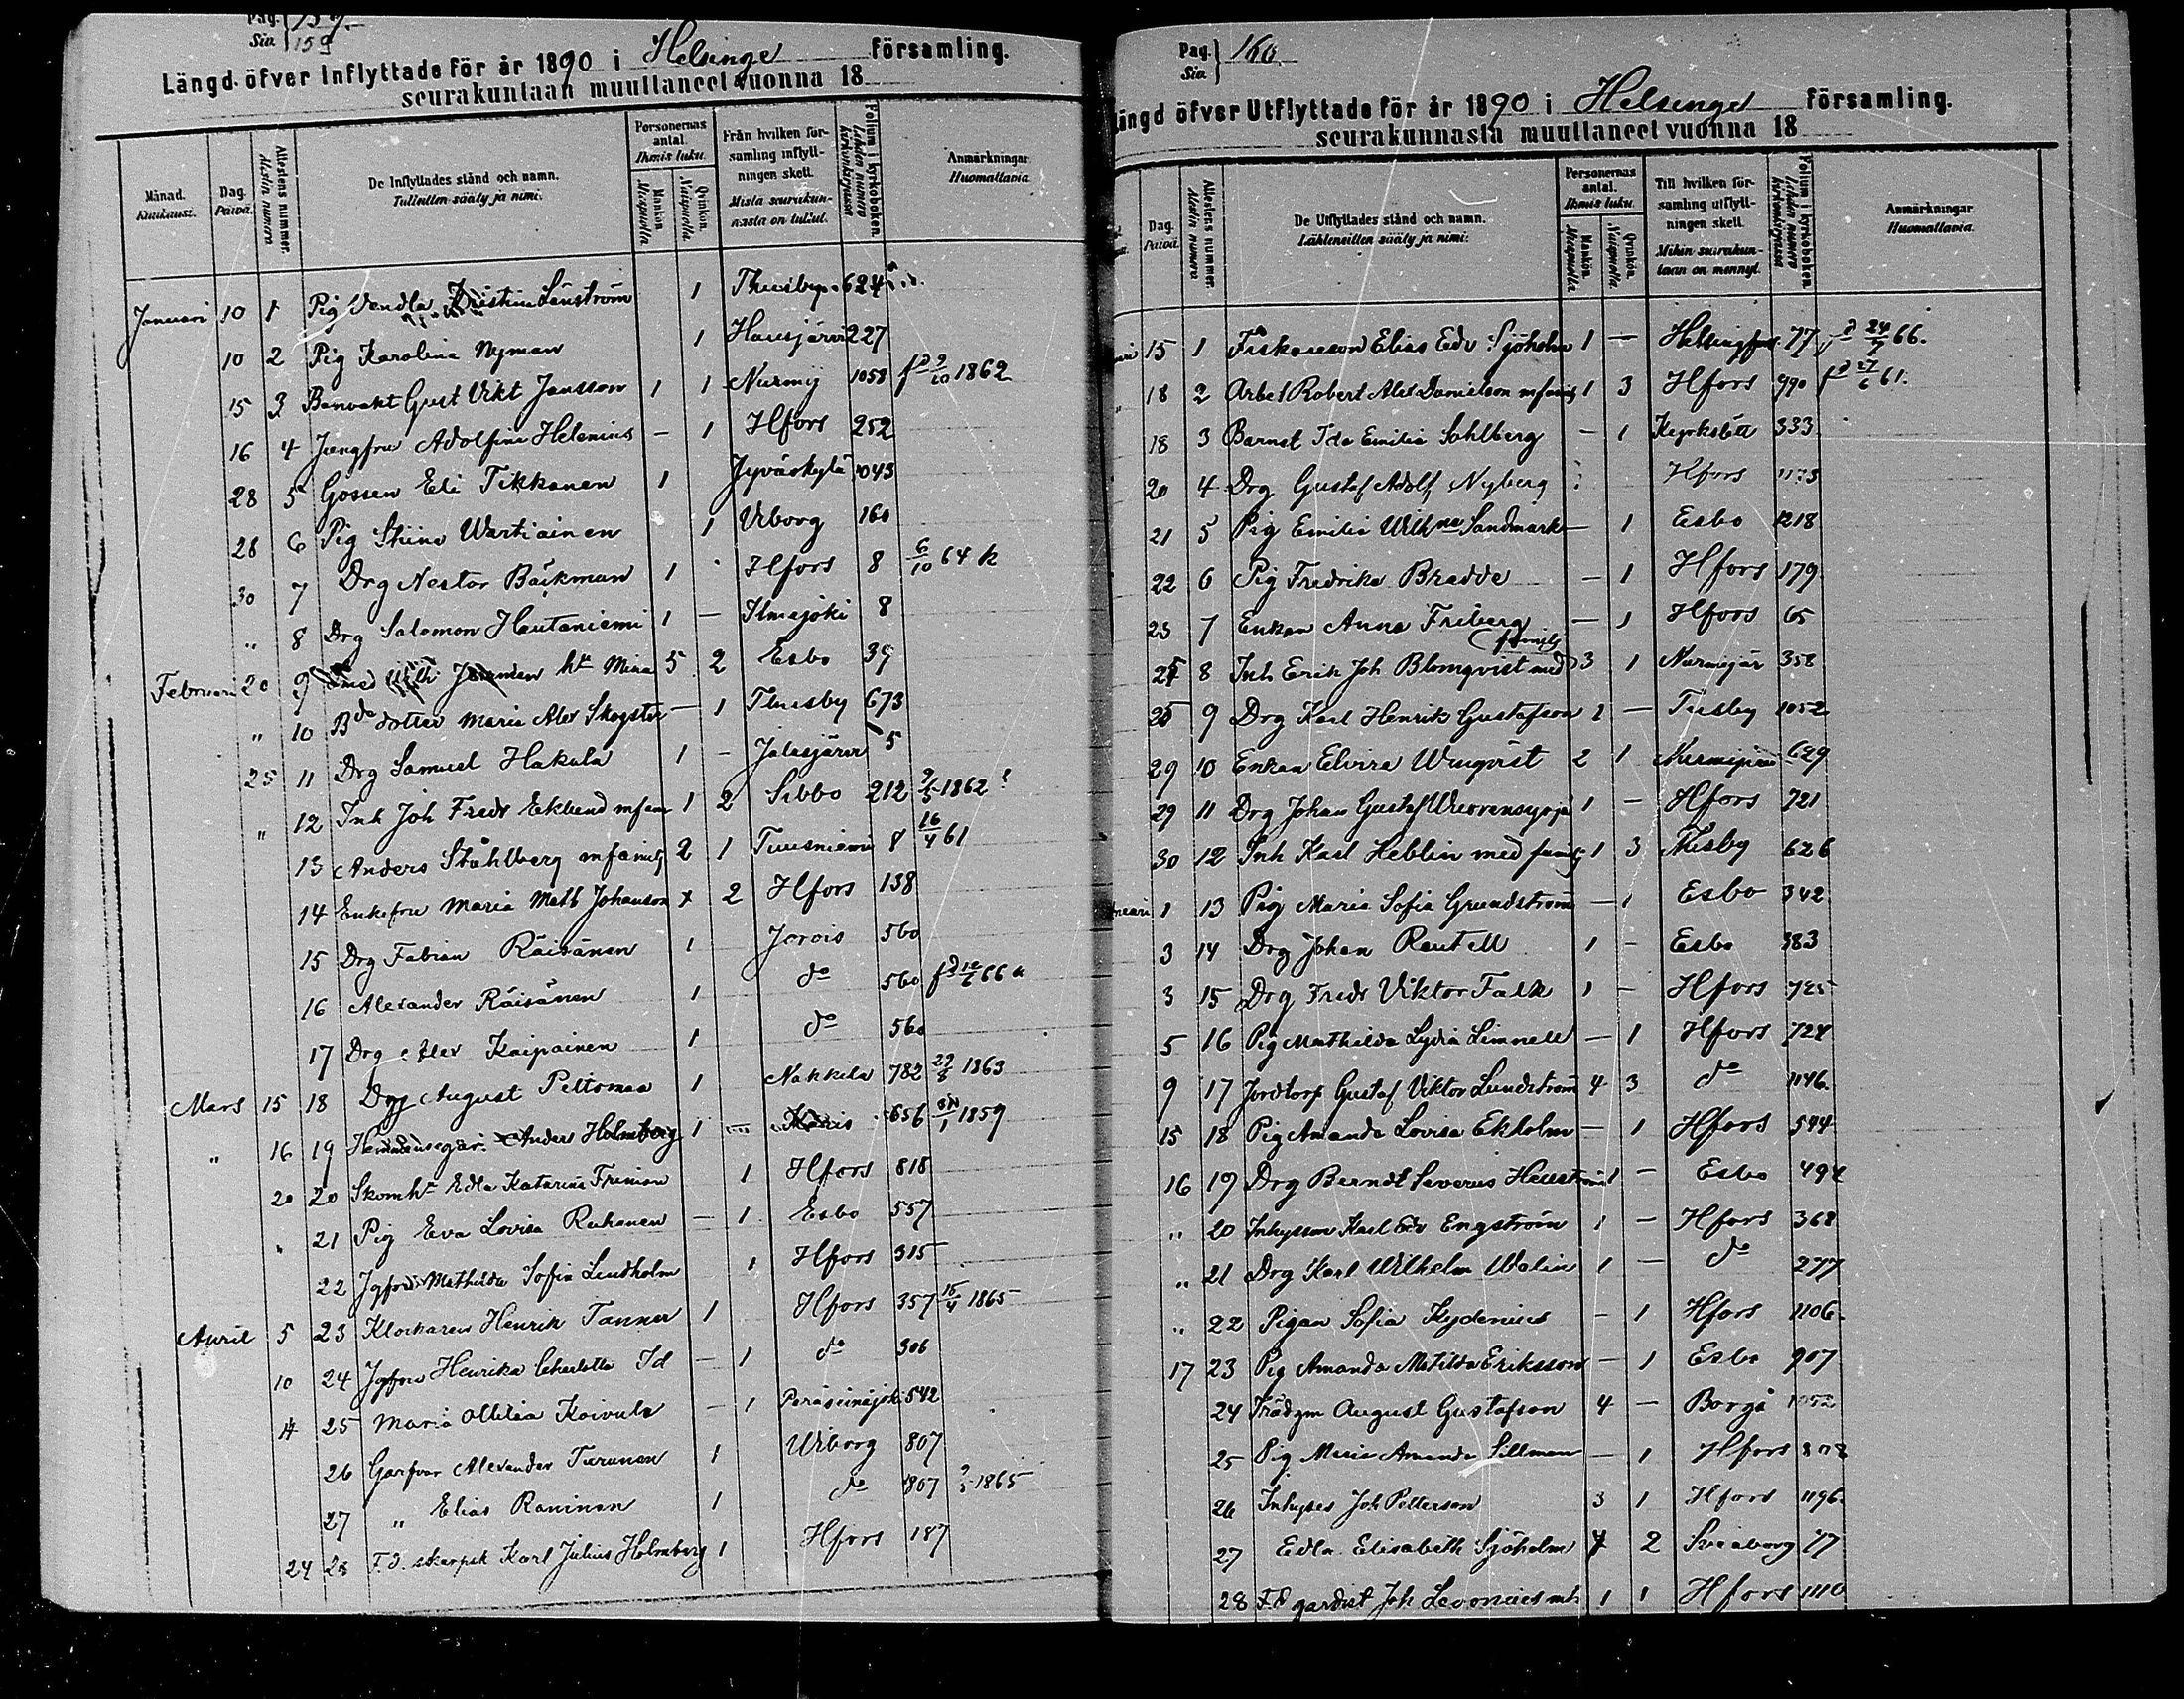 Pag. 159.
Siv. 159
Längd öfver Inflyttade för år 1890 i Helsinge församling.
seurakuntaan muuttaneet vuonna 18
Månad. Kuukausi.
Dag. Päivä.
Attestens nummer. Alestin numero
De Inflyttades stånd och namn. Tulleitten sääty ja nimi.
Personernas antal. Ihmis luku.
Mankön. Miespuolia.
Qvinkön. Naispuolia.
Från hvilken församling inflyttningen skett. Mista seurakunnasta on tullut.
Folium i kyrkoboken. Lehden numero kirkonkirjassa
Anmärkningar. Huomattavia.
Januari 10 1 Pig Vendla Kristina Lönström 1 Thusby 624
10 2 Pig Karolina Nyman 1 Hausjärvi 227
15 3 Banvakt Gust Vikt Jansson 1 1 Nurmij 1058 fd 9/10 1862
16 4 Jungfru Adolfina Helenius - 1 Hfors 252
28 5 Gossen Eli Tikkanen 1 Jyväskylä 1043
28 6 Pig Stina Wartiainen 1 Viborg 160
30 7 Drg Nestor Bäckman 1 Hfors 8 6/10 64 k
" 8 Drg Salomon Hautaniemi 1 - Ilmajoki 8
Februari 20 9 hu Mina 5 2 Esbo 39
" 10 Bde dotter Maria Alex Skogster - 1 Thusby 673
25 11 Drg Samuel Hakala 1 - Jalasjärvi 5
" 12 Inh Joh Fredr Eklund m fam 1 2 Sibbo 212 9/5 1862 ?
13 Anders Ståhlberg m familj 2 1 Tuusniemi 8 16/4 61
14 Enkefru Maria Math Johanson x 2 Hfors 138
15 Drg Fabian Räisänen 1 Jorois 560
16 Alexander Räisänen 1 do 560
17 Drg Alex Kaipainen 1 do 560
Mars 15 18 Drg August Peltomaa 1 Nakkila 782 29/8 1863
" 16 19 Hemmansegar. Anders Holmberg 1 - Karis 656 1859
20 20 Skomhu Edla Katarina Friman 1 Hfors 818
" 21 Pig Eva Lovisa Ruhanen - 1 Esbo 557
22 Jgfru Mathilda Sofia Lindholm 1 Hfors 315
April 5 23 Klockaren Henrik Tanner 1 Hfors 357 15/4 1865
10 24 Jgfru Henrika Charlotta Id - 1 do 306
25 Maria Ottilia Koivula - 1 Peräseinäjoki 542
26 Garfvar Alexander Turunen 1 Wiborg 807
27 " Elias Raninen 1 do 807 1865
24 28 F.d. skarpsk Karl Julius Holmberg 1 Hfors 187
Pag. 160.
Siv.
Längd öfver Utflyttade för år 1890 i Helsinge församling.
seurakunnasta muuttaneet vuonna 18
Dag. Päivä.
Attestens nummer. Alestin numero
De Utflyttades stånd och namn. Lähteneitten sääty ja nimi.
Personernas antal. Ihmis luku.
Mankön. Miespuolia.
Qvinkön. Naispuolia.
Till hvilken församling utflyttningen skett. Mihin seurakuntaan on mennyt.
Folium i kyrkoboken. Lehden numero kirkonkirjassa
Anmärkningar. Huomattavia.
15 1 Fiskareson Elias Edv. Sjöholm 1 - Helsingfors 77 fd 24/7 66.
" 18 2 Arbet Robert Alex Danielson m familj 1 3 Hfors 990 fd 27/6 61.
18 3 Barnet Ida Emilia Sahlberg - 1 Kyrkslätt 333
20 4 Drg Gustaf Adolf Nyberg Hfors 1173
21 5 Pig Emilia Wilhna Sandmark - 1 Esbo 1218
22 6 Pig Fredrika Bradde - 1 Hfors 179
23 7 Enkan Anna Friberg - 1 Hfors 65
25 8 Inh Erik Joh Blomqvist med (familj) 3 1 Nurmijär 358
25 9 Drg Karl Henrik Gustafson 1 - Tusby 1052
29 10 Enkan Elvira Winqvist 2 1 Nurmijärvi 629
29 11 Drg Johan Gustaf 1 - Hfors 721
30 12 Inh Karl Heblin med familj 1 3 Thusby 626
1 13 Pig Maria Sofia Grundström - 1 Esbo 342
3 14 Drg Johan Rautell 1 - Esbo 383
3 15 Drg Fredr Viktor Falk 1 - Hfors 725
5 16 Pig Mathilda Lydia Limnell - 1 Hfors 724
9 17 Jordtorp Gustaf Viktor Lundström 4 3 do 1146.
15 18 Pig Amanda Lovisa Ekholm - 1 Hfors 544
16 19 Drg Berndt Severus 1 - Esbo 494
" 20 Inhysson Karl Edv Engström 1 - Hfors 368
" 21 Drg Karl Wilhelm Walin 1 - do 277
" 22 Pigan Sofia Kydenius - 1 Hfors 1106
17 23 Pig Amanda Matilda Eriksson - 1 Esbo 907
24 Trädgm August Gustafson 4 - Borgå 1052
25 Pig Maria Amanda Sillman - 1 Hfors 808
26 Inhyses Joh Petterson 3 1 Hfors 1196.
27 Edla Elisabeth Sjöholm 4 2 Sveaborg 77
28 F.d gardist Joh Levonius mh 1 1 Hfors 1110